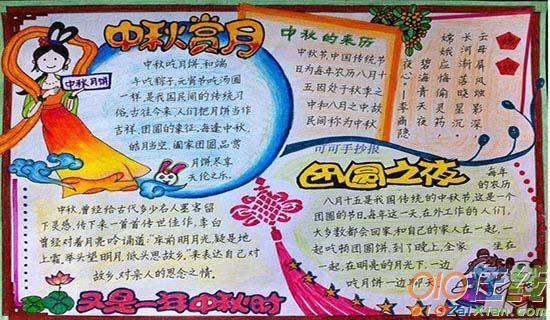 中秋赏月
中秋月饼
中秋吃月饼,和端
午吃粽子、元宵节吃汤圆
一样,是我国民间的传统习
俗。古往今来,人们把月饼当作
吉祥、团圆的象征,每逢中秋,
皓月当空,阖家团圆,品赏
月饼尽享
天伦之乐。
中秋的来历
中秋节,中国传统节
日为每年农历八月十
五因处于秋季之
中和八月之中故
民间称为中秋
嫦娥
云母屏风烛影深
长河渐落晓星沉
嫦娥应悔偷灵药
碧海青天夜
夜心——李商隐
可可手抄报
团圆之夜
每年
的农历
八月十五是我国传统的中秋节,这是一个
团圆的节日,每年这一天,在外工作的人们,
大多数都会回家,和自己的家人在一起,一
起吃顿团圆饼,到了晚上,全家 坐在
一起,在明亮的月光下,一边
吃月饼一边聊天
中秋,曾经给古代多少名人墨客留
下灵感,传下来一首首传世佳作,李白
曾经对着月亮吟诵道:“床前明月光,疑是地
上霜,举头望明月,低头思故乡。”来表达自己对
故乡、对亲人的思念之情。
又是一年中秋时
010在线
x1o2aixian.com